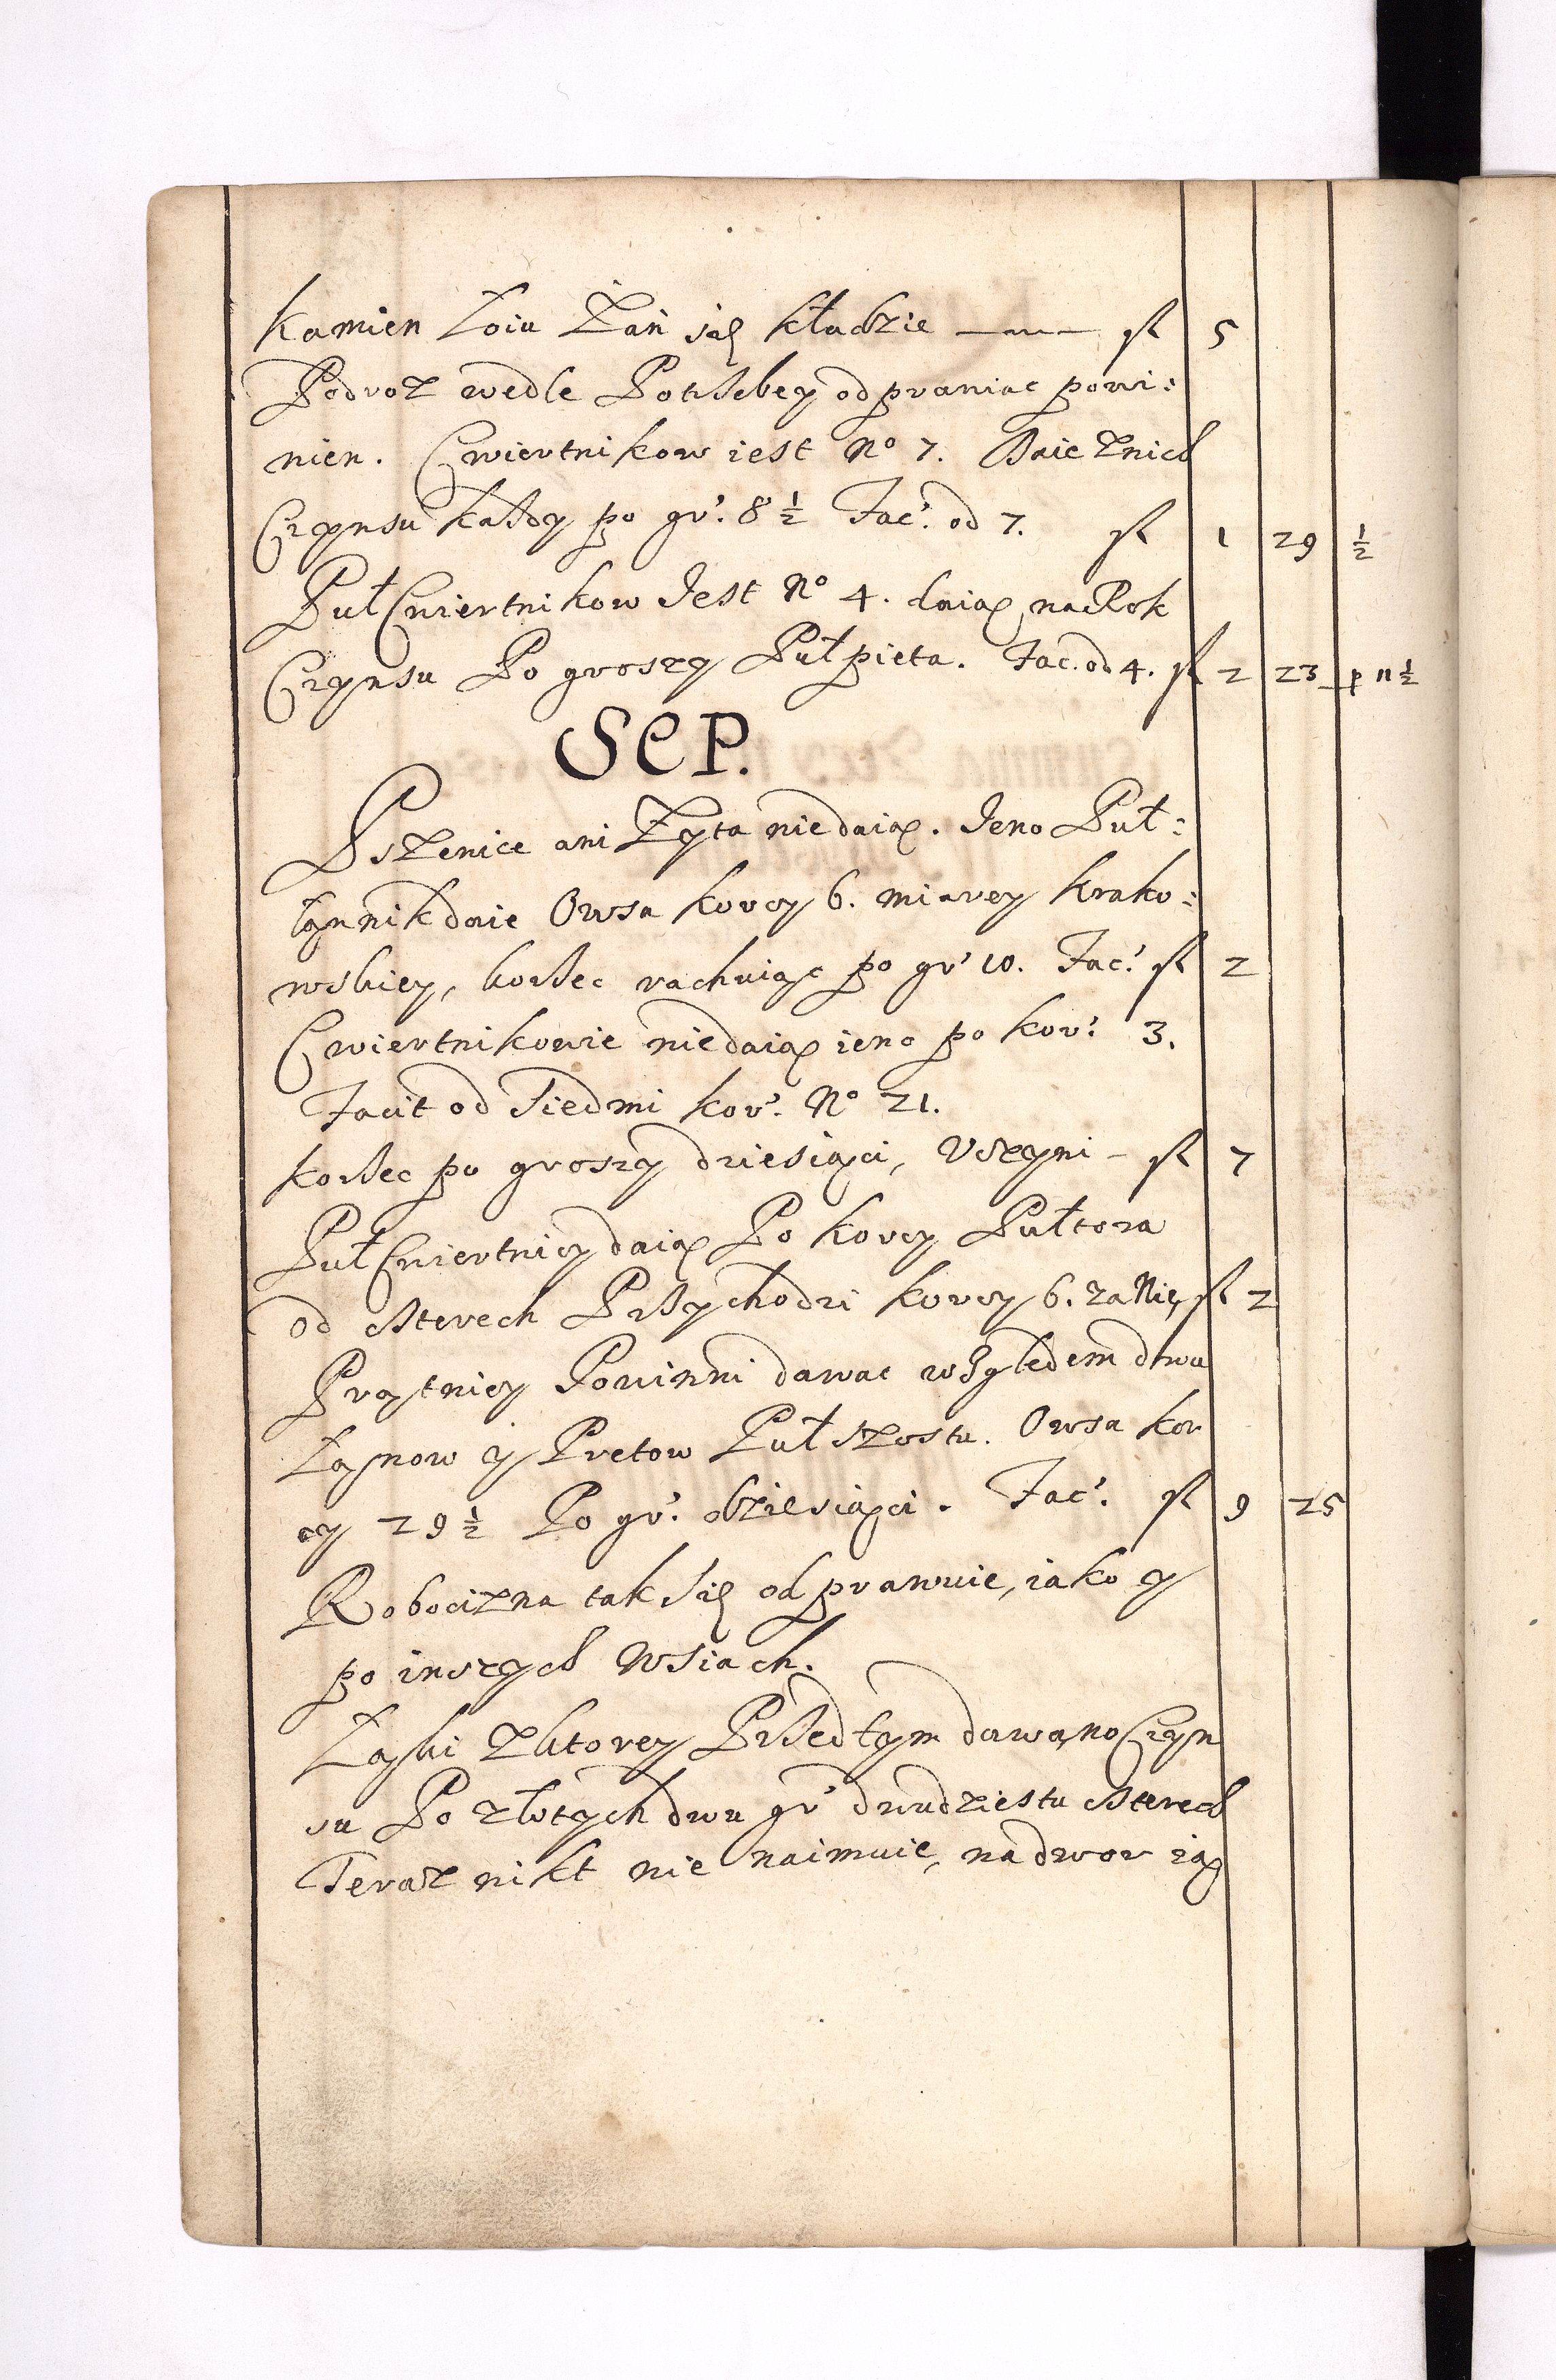 Kamien Łoiu Zań się kładzie — fl 5
Podroz wedle Potrzeby odprawiac powi:
nien. Cwiertnikow iest No 7. Daie Znich
Czynsu każdy po gr. 8 ½ Fac. od 7. fl 1 29 ½
Puł Cwiertnikow Jest No 4. daią na Rok
Czynsu Po groszy Puł pięta. Fac. od 4. fl 2 23 p 11 ½
SEP.
Pszenice ani Zyta nie daią. Jeno Puł:
łannik daie Owsa korcy 6. miarey krako:
wskiey, korzec rachuiąc po gr 10. Fac. fl 2
Cwiertnikowie nie daią ieno po kor. 3.
Facit od Siedmi kor. No 21.
korzec po groszy dziesiąci, Uczyni - fl 7
Puł Cwiertnicy daią Po korcy Pułtora
od czterech Przychodzi korcy 6. za Nię fl 2
Prętnicy Powinni dawac względem dwu
Łanow y Pretow Puł szosta. Owsa kor
cy 29 ½ Po gr. dziesiąci. Fac. fl 9 25
Robocizna tak się odprawuie, iako y
po inszych Wsiach.
Łąki Zktorey Przed tym dawano Czyn
su Po złotych dwu gr dwudziestu czterech
Teraz nikt nie naimuie, na dwor ią